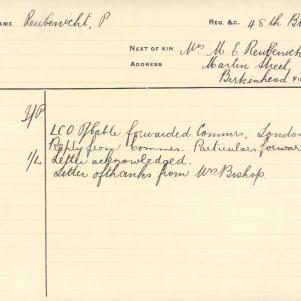 NAME Reubenicht, P REG. &C. 48th B
NEXT OF KIN Mrs M. E. Reubenich
ADDRESS Martin Street,
Birkenhead
I/P
LCO Cable forwarded Commrs. London
Reply from Commrs. Particulars forwar
1/L Letter acknowledged.
Letter of thanks from Mrs Bishop.